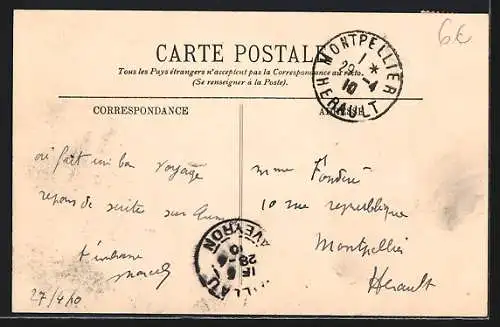 6€
CARTE POSTALE
Tous les Pays étrangers n'acceptent pas la Correspondance au recto.
(Se renseigner à la Poste).
MONTPELLIER
1 *
29 -4
10
HERAULT
CORRESPONDANCE
ADRESSE
ai fait un bon voyage
repons de suite sur
t'embrasse
Marcel
27/4/10
Mme Fondère
10 rue republique
Montpellier
Hérault
15
28 -4
10
AVEYRON